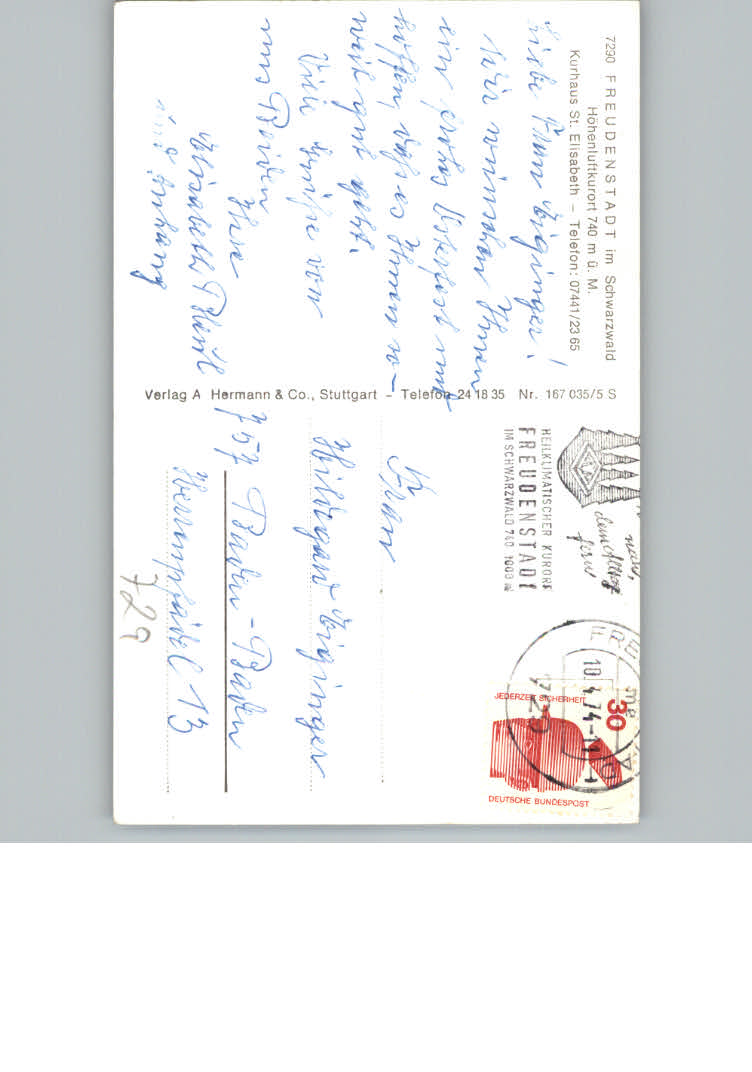 7290 FREUDENSTADT im Schwarzwald
Höhenluftkurort 740 m ü. M.
Kurhaus St. Elisabeth – Telefon: 07441/23 65
Liebe Frau Eiginger!
Wir wünschen Ihnen
ein frohes Osterfest und
hoffen, daß es Ihnen so-
weit gut geht.
Viele Grüße von
uns Beiden
Ihre
Elisabeth
und Anhang
Verlag A Hermann & Co., Stuttgart – Telefon 24 18 35 Nr. 167 035/5 S
HEILKLIMATISCHER KURORT
FREUDENSTADT
IM SCHWARZWALD 740 1000 m
nah,
dem Alltag
fern
FRE
10.4.74-11
729
30
JEDERZEIT SICHERHEIT
DEUTSCHE BUNDESPOST
Frau
Hildegard Eiginger
757 Baden-Baden
Herrenpfädel 13
729